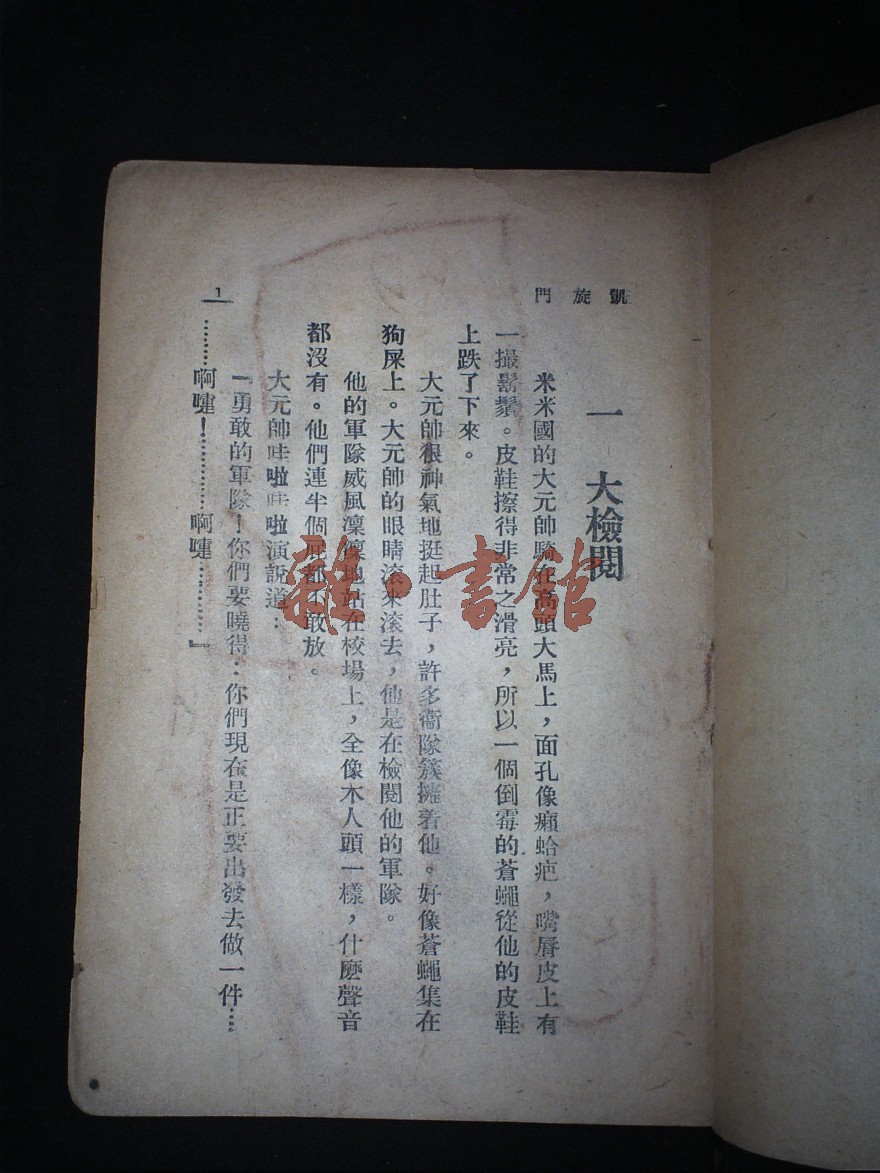 凱旋門
一 大檢閱
米米國的大元帥騎在高頭大馬上，面孔像癩蛤疤，嘴唇皮上有
一撮鬍鬚。皮鞋擦得非常之滑亮，所以一個倒霉的蒼蠅從他的皮鞋
上跌了下來。
大元帥很神氣地挺起肚子，許多衞隊簇擁着他。好像蒼蠅集在
狗屎上。大元帥的眼睛滾來滾去，他是在檢閱他的軍隊。
他的軍隊威風凜凜地站在校場上，全像木人頭一樣，什麼聲音
都沒有。他們連半個屁都不敢放。
大元帥哇啦哇啦演說道：
『勇敢的軍隊！你們要曉得：你們現在是正要出發去做一件……
………啊嚏！……………啊嚏…………』
1
雜·書館